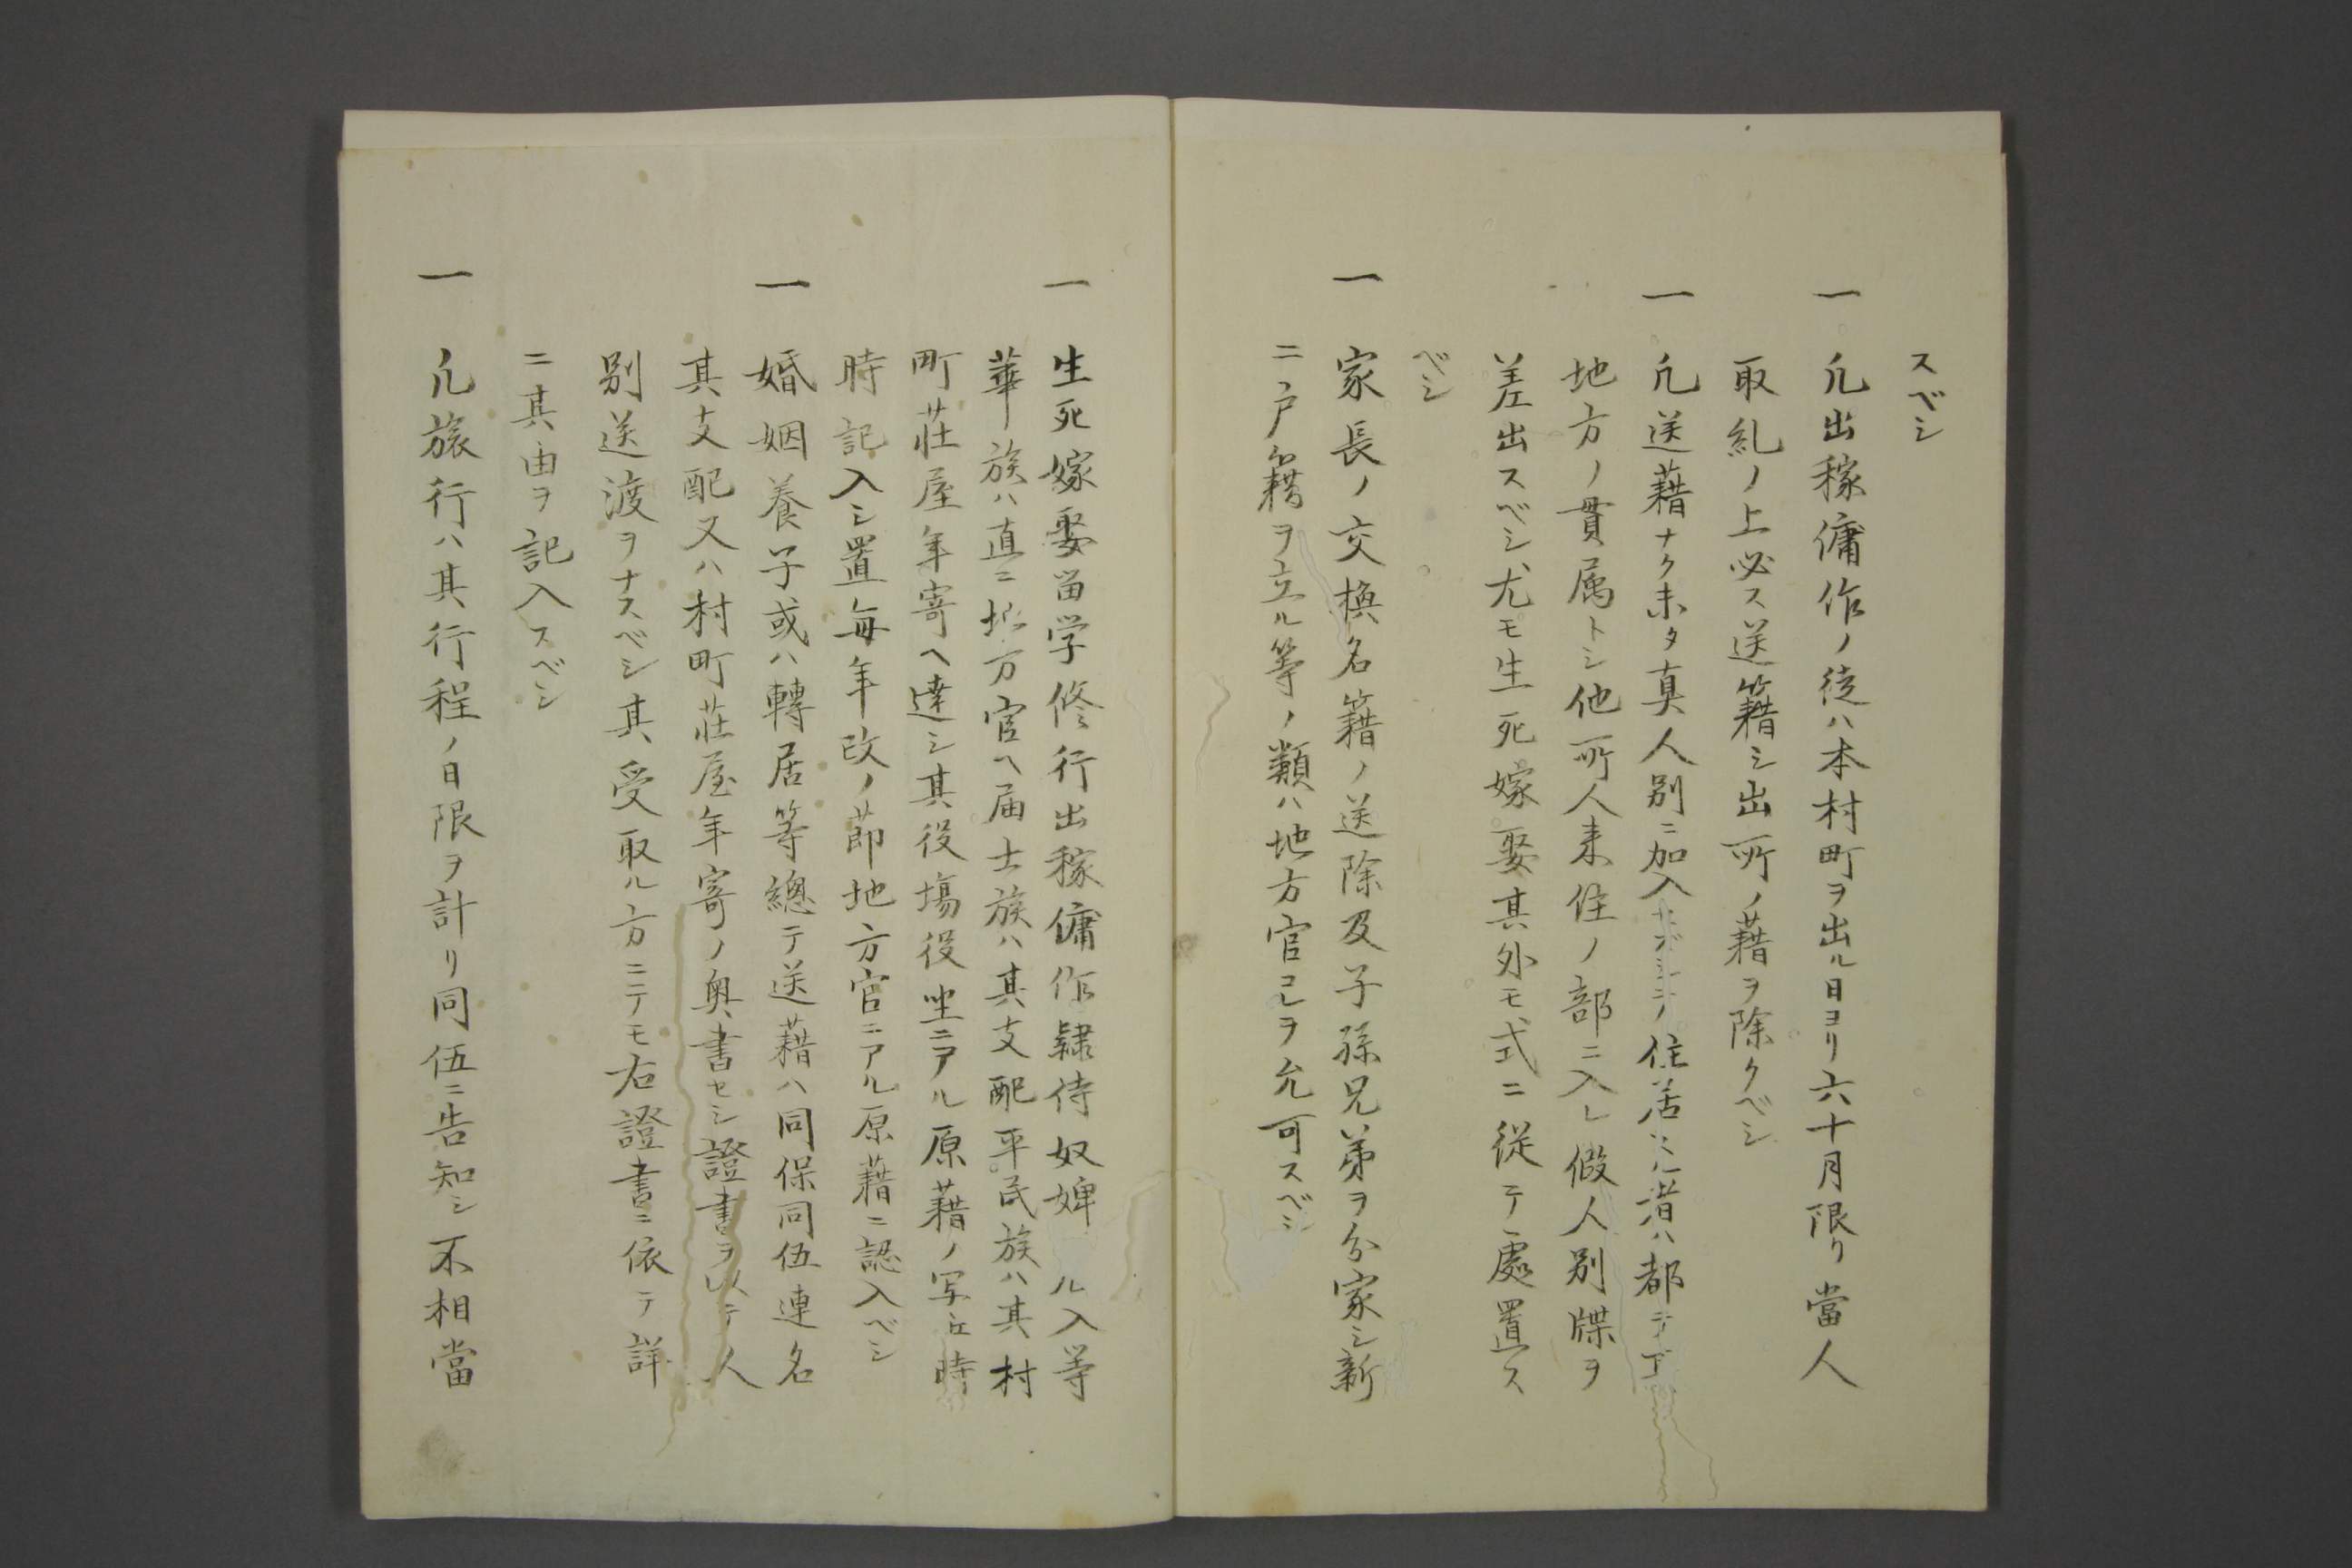 スベシ
一 凡出稼傭作ノ徒ハ本村町ヲ出ル日ヨリ六十月限リ當人
取糺ノ上必ス送籍シ出所ノ藉ヲ除クベシ
一 凡送藉ナク未タ真人別ニ加入 住居スル者ハ都テ
地方ノ貫属トシ他所人来住ノ部ニ入レ假人別牒ヲ
差出スベシ尤モ生死嫁娶其外モ式ニ從テ處置ス
ベシ
一 家長ノ交換名籍ノ送除及子孫兄弟ヲ分家シ新
ニ戸籍ヲ立ル等ノ類ハ地方官コレヲ允可スベシ
一 生死嫁娶留学修行出稼傭作隷侍奴婢 ル入等
華族ハ直ニ地方官ヘ届士族ハ其支配平民族ハ其村
町荘屋年寄ヘ達シ其役塲役坐ニアル原藉ノ写ニ時
時記入シ置毎年改ノ節地方官ニアル原藉ニ認入ベシ
一 婚姻養子或ハ轉居等總テ送藉ハ同保同伍連名
其支配又ハ村町荘屋年寄ノ奥書セシ證書ヲ以テ人
別送渡ヲナスベシ其受取ル方ニテモ右證書ニ依テ詳
ニ其由ヲ記入スベシ
一 凡旅行ハ其行程ノ日限ヲ計リ同伍ニ告知シ不相當